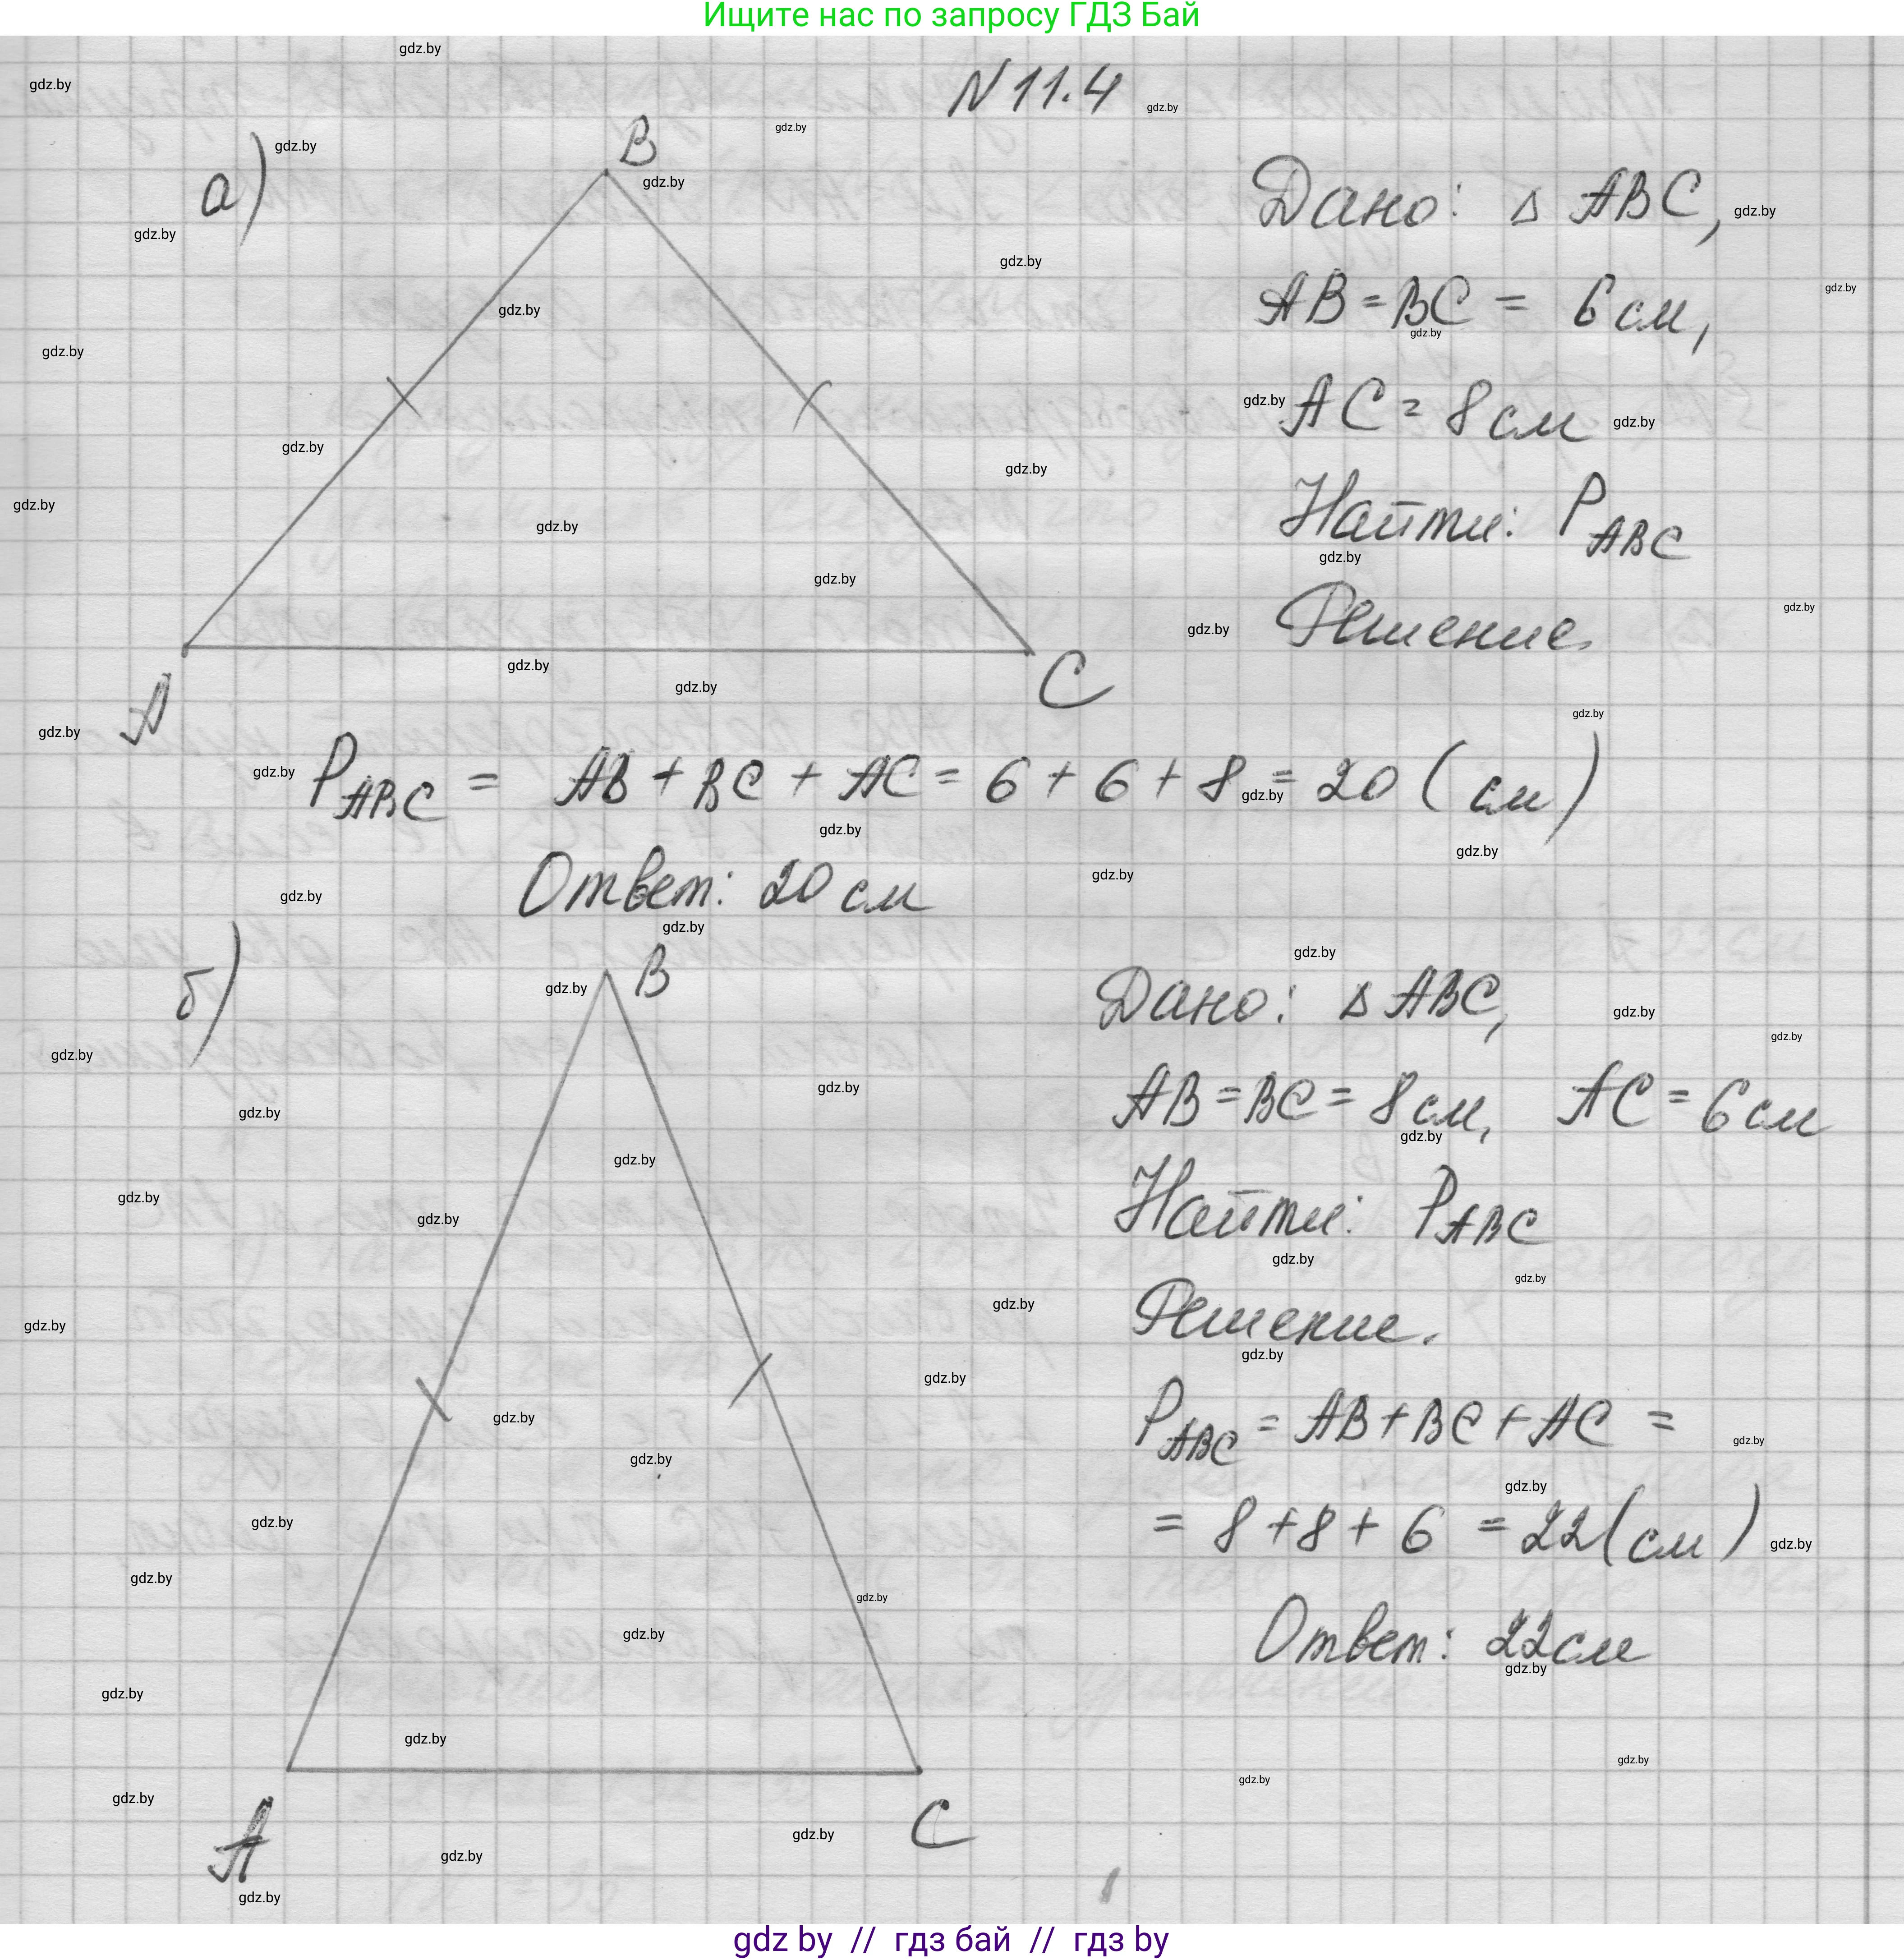 Ищите нас по запросу ГДЗ Бай
N 11.4
а)
B
A
C
Дано: △ ABC,
AB = BC = 6 см,
AC = 8 см
Найти: P_ABC
Решение.
P_ABC = AB + BC + AC = 6 + 6 + 8 = 20 (см)
Ответ: 20 см
б)
B
A
C
Дано: △ ABC,
AB = BC = 8 см, AC = 6 см
Найти: P_ABC
Решение.
P_ABC = AB + BC + AC =
= 8 + 8 + 6 = 22 (см)
Ответ: 22 см
gdz by // гдз бай // гдз by
gdz.by